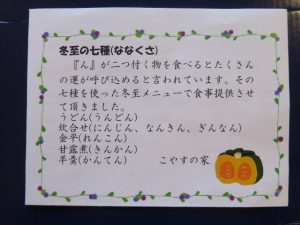 冬至の七種(ななくさ)
『ん』が二つ付く物を食べるとたくさん
の運が呼び込めると言われています。その
七種を使った冬至メニューで食事提供させ
て頂きました。
うどん(うんどん)
炊合せ(にんじん、なんきん、ぎんなん)
金平(れんこん)
甘露煮(きんかん)
羊羹(かんてん)　　こやすの家